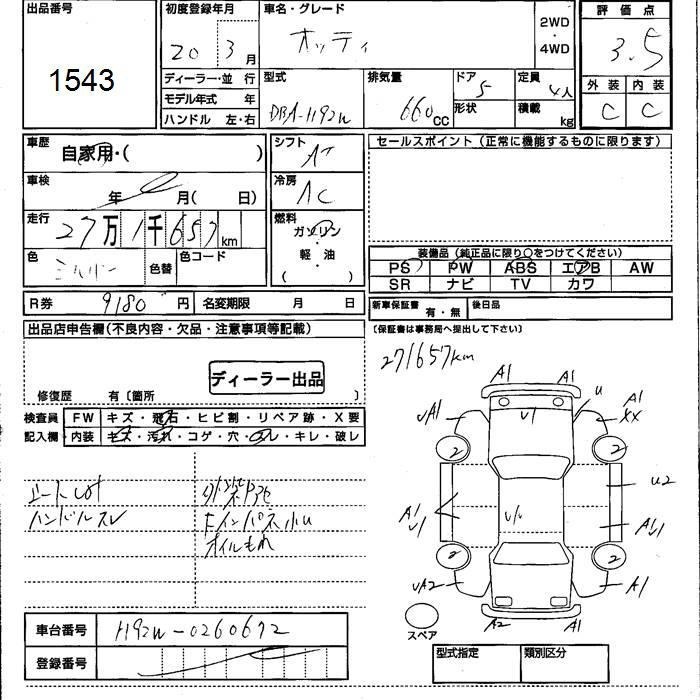 出品番号
1543
初度登録年月
20 3月
車名・グレード
オッティ
2WD
・
4WD
評価点
3.5
外装 内装
C C
ディーラー・並行
モデル年式 年
ハンドル 左・右
型式
DBA-H92W
排気量
660cc
ドア
5
形状
定員
4人
積載
kg
車歴
自家用・( )
シフト
AT
車検
年 月( 日)
冷房
AC
走行
27万1千657km
燃料
ガソリン
・
軽・油
( )
色
シルバー
色替
色コード
セールスポイント(正常に機能するものに限ります)
装備品(純正品に限り○をつけてください)
PS PW ABS エアB AW
SR ナビ TV カワ
R券 9180円
名変期限 月 日
新車保証書 有・無
後日品
(保証書は事務局へ提出して下さい)
出品店申告欄(不良内容・欠品・注意事項等記載)
ディーラー出品
修復歴 有〔箇所 〕
271657km
検査員 FW キズ・飛石・ヒビ割・リペア跡・X要
記入欄 内装 キズ・汚れ・コゲ・穴・スレ・キレ・破レ
ハンドルスレ
Fインパネ小U
オイルもれ
A1 A1
U
UA1
U1
A1
XX
2 2
A1
U1
U2
A1
U1
2 2
UA2
A1
A2 A1
スペア
車台番号 H92W-0260672
登録番号
型式指定 類別区分